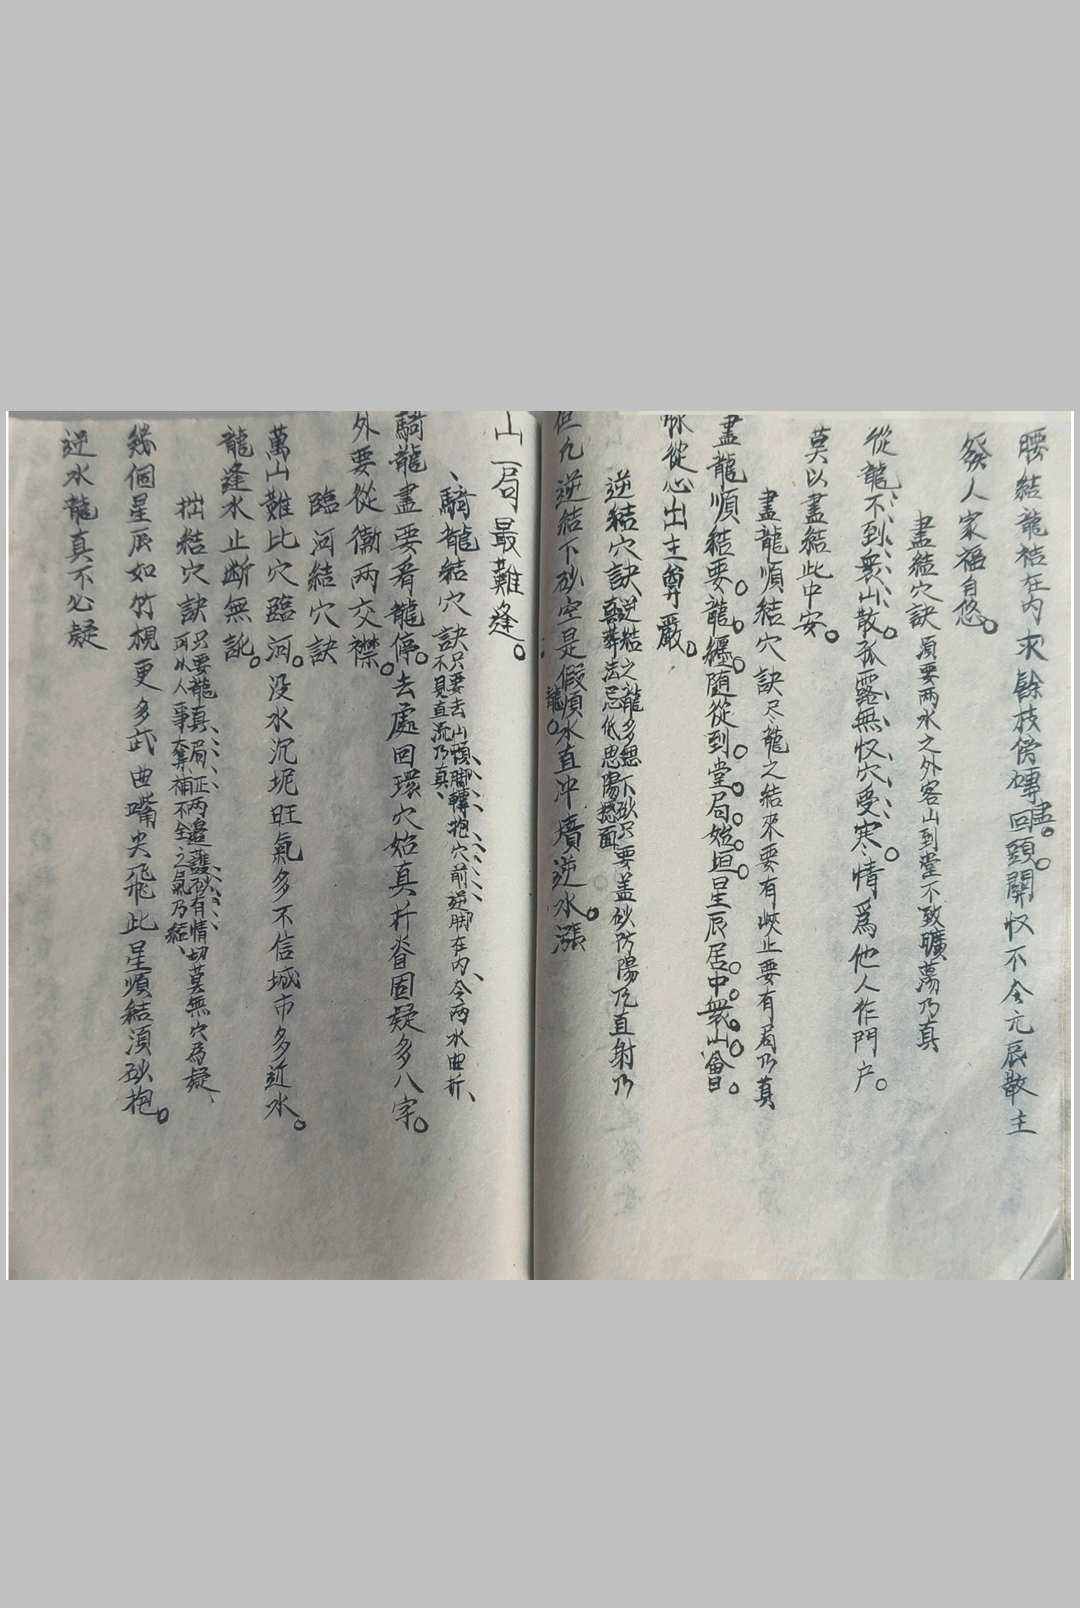 腰結龍祜在內求餘枝傍磚盡回頭關収不令元辰散主
發人家福自悠
盡結穴訣須要兩水之外客山到堂不致曠蕩乃真
從龍不到衆山散孤露無収穴受寒情爲他人作門户
莫以盡結此中安
盡龍順結穴訣尽龍之結來要有峽止要有局乃真
盡龍順結要龍纏随從到堂局始垣星辰居中衆山會
脉從心出主尊嚴
逆結穴訣逆結之龍多纏下砂只要盖砂防陽氹直射乃
真葬法忌低思陽撼面
但九逆結下砂空是假龍順水直冲墳逆水漲
山一局最難逢
騎龍結穴訣只要去山順脚轉抱穴前逆脚在内令兩水曲折
不見直流乃真
騎龍盡要看龍停去處回環穴始真折眷固疑多八字
外要從衛兩交襟
臨河結穴訣
萬山難比穴臨河没水沉坭旺氣多不信城市多近水
龍逢水止断無訛
拙結穴訣只要龍真局正兩邉護砂有情切莫無穴為疑
可以人事奪補不全之氣乃結
幾個星辰如竹梘更多武曲嘴尖飛此星順結湏砂抱
逆水龍真不必疑